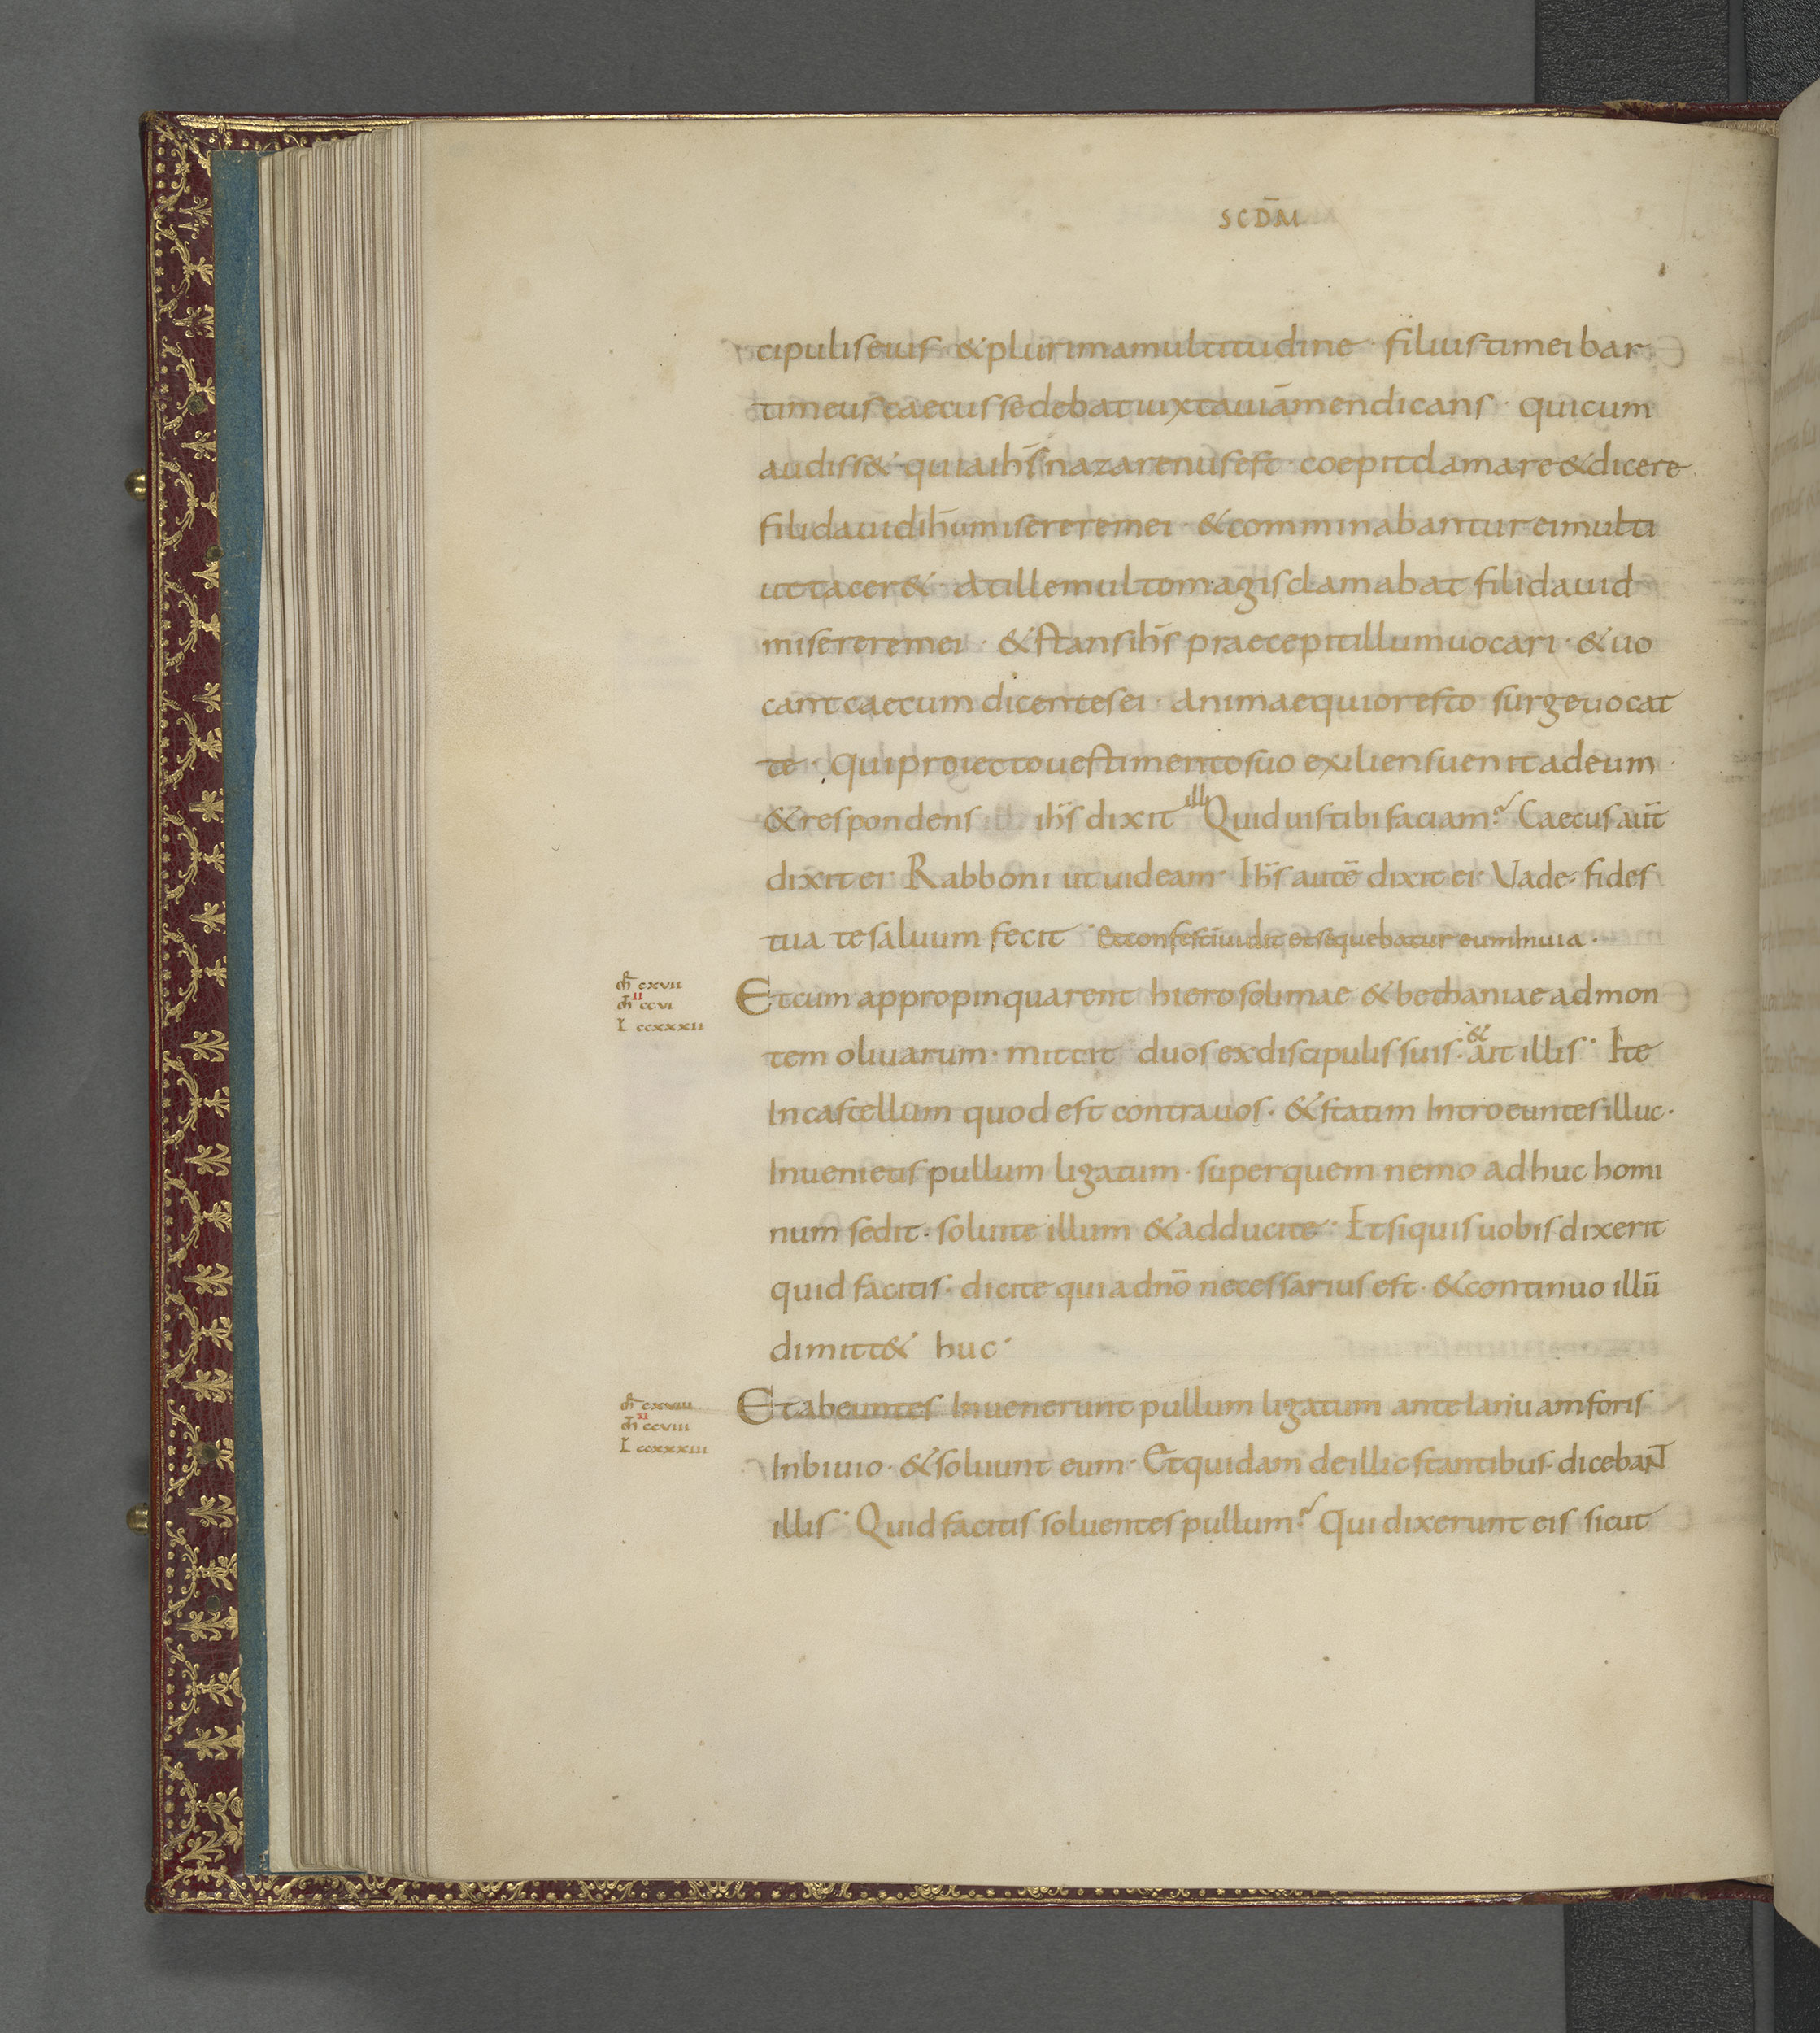 SCDM̄
cipulis eius & plurima multitudine · filius timei bar
timeus caecus sedebat iuxta uiā mendicans · qui cum
audiss& quia ihs̄ nazarenus est · coepit clamare & dicere
fili dauid ihū miserere mei · & comminabantur ei multi
ut tacer& · at ille multo magis clamabat fili dauid
miserere mei · & stans ihs̄ praecepit illum uocari · & uo
cant caecum dicentes ei · animaequior esto surge uocat
te · qui proiecto uestimento suo exiliens uenit ad eum ·
ill
& respondens ihs̄ dixit Quid uis tibi faciam? Caecus aūt
dixit ei Rabboni ut uideam · Ihs̄ autē dixit ei · Vade · fides
tua te saluum fecit · Et confestī uidit et sequebatur eum In uia ·
Et cum appropinquarent hierosolimae & bethaniae ad mon
c̄xvii
ccvi
II
L ccxxxii
&
tem oliuarum · mittit duos ex discipulis suis · ait illis · Ite
In castellum quod est contra uos · & statim Intro euntes illuc ·
Inuenietis pullum ligatum · super quem nemo adhuc homi
num sedit · soluite illum & adducite · Et si quis uobis dixerit
quid facitis · dicite quia dnō necessarius est · & continuo illū
dimitt& huc ·
Et abeuntes Inuenerunt pullum ligatum ante ianuam foris
cxviii
ccviii
L ccxxxiii
In biuio · & soluunt eum · Et quidam de illic stantibus dicebaNT
illis · Quid facitis soluentes pullum? Qui dixerunt eis sicut